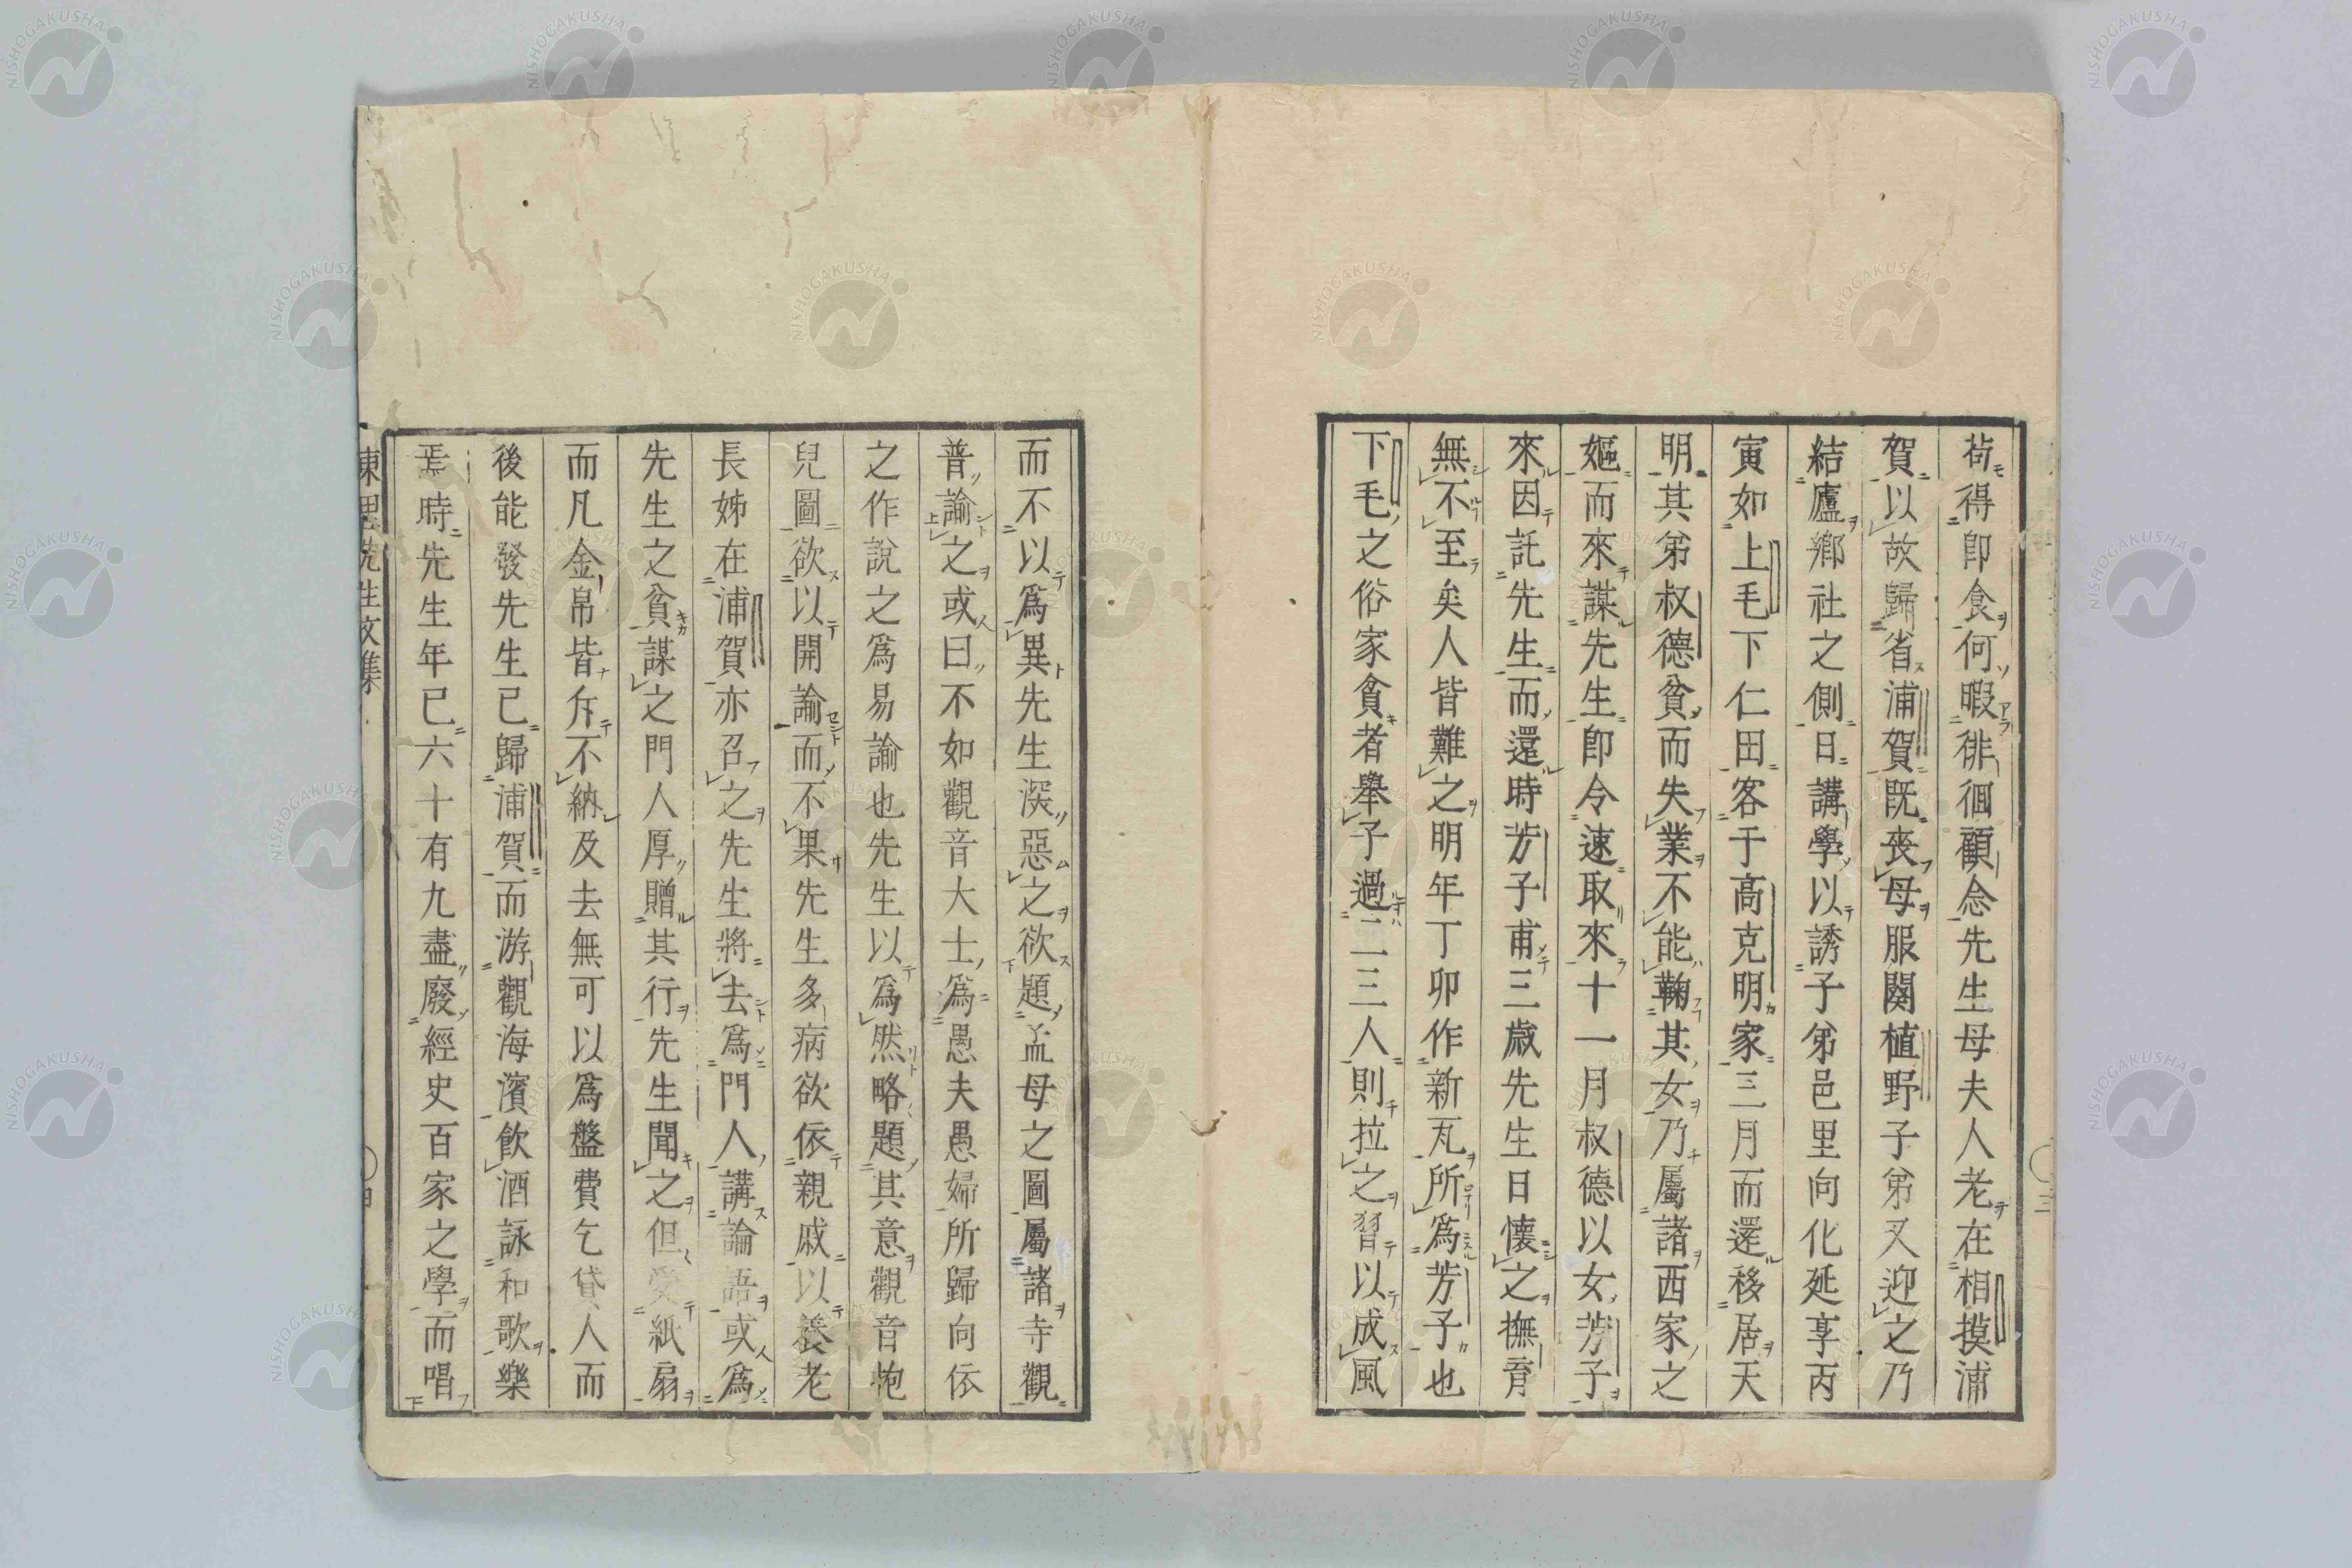 苟得卽食何暇徘徊顧念先生母夫人老在相摸浦
賀以故歸省浦賀既喪母服闋植野子弟又迎之乃
結廬鄉社之側日講學以誘子弟邑里向化延享丙
寅如上毛下仁田客于高克明家三月而還移居天
明其弟叔德貧而失業不能鞠其女乃屬諸西家之
嫗而來謀先生卽令速取來十一月叔德以女芳子
來因託先生而還時芳子甫三歲先生日懷之撫育
無不至矣人皆難之明年丁卯作新瓦所爲芳子也
下毛之俗家貧者舉子過二三人則拉之習以成風
而不以爲異先生深惡之欲題孟母之圖屬諸寺觀
普諭之或曰不如觀音大士爲愚夫愚婦所歸向依
之作說之爲易諭也先生以爲然略題其意觀音抱
兒圖欲以開諭而不果先生多病欲依親戚以養老
長姊在浦賀亦召之先生將去爲門人講論語或爲
先生之貧謀之門人厚贈其行先生聞之但受紙扇
而凡金帛皆斥不納及去無可以爲盤費乞貸人而
後能發先生已歸浦賀而游觀海濱飲酒詠和歌樂
焉時先生年已六十有九盡廢經史百家之學而唱
東里先生文集
三
NISHOGAKUSHA